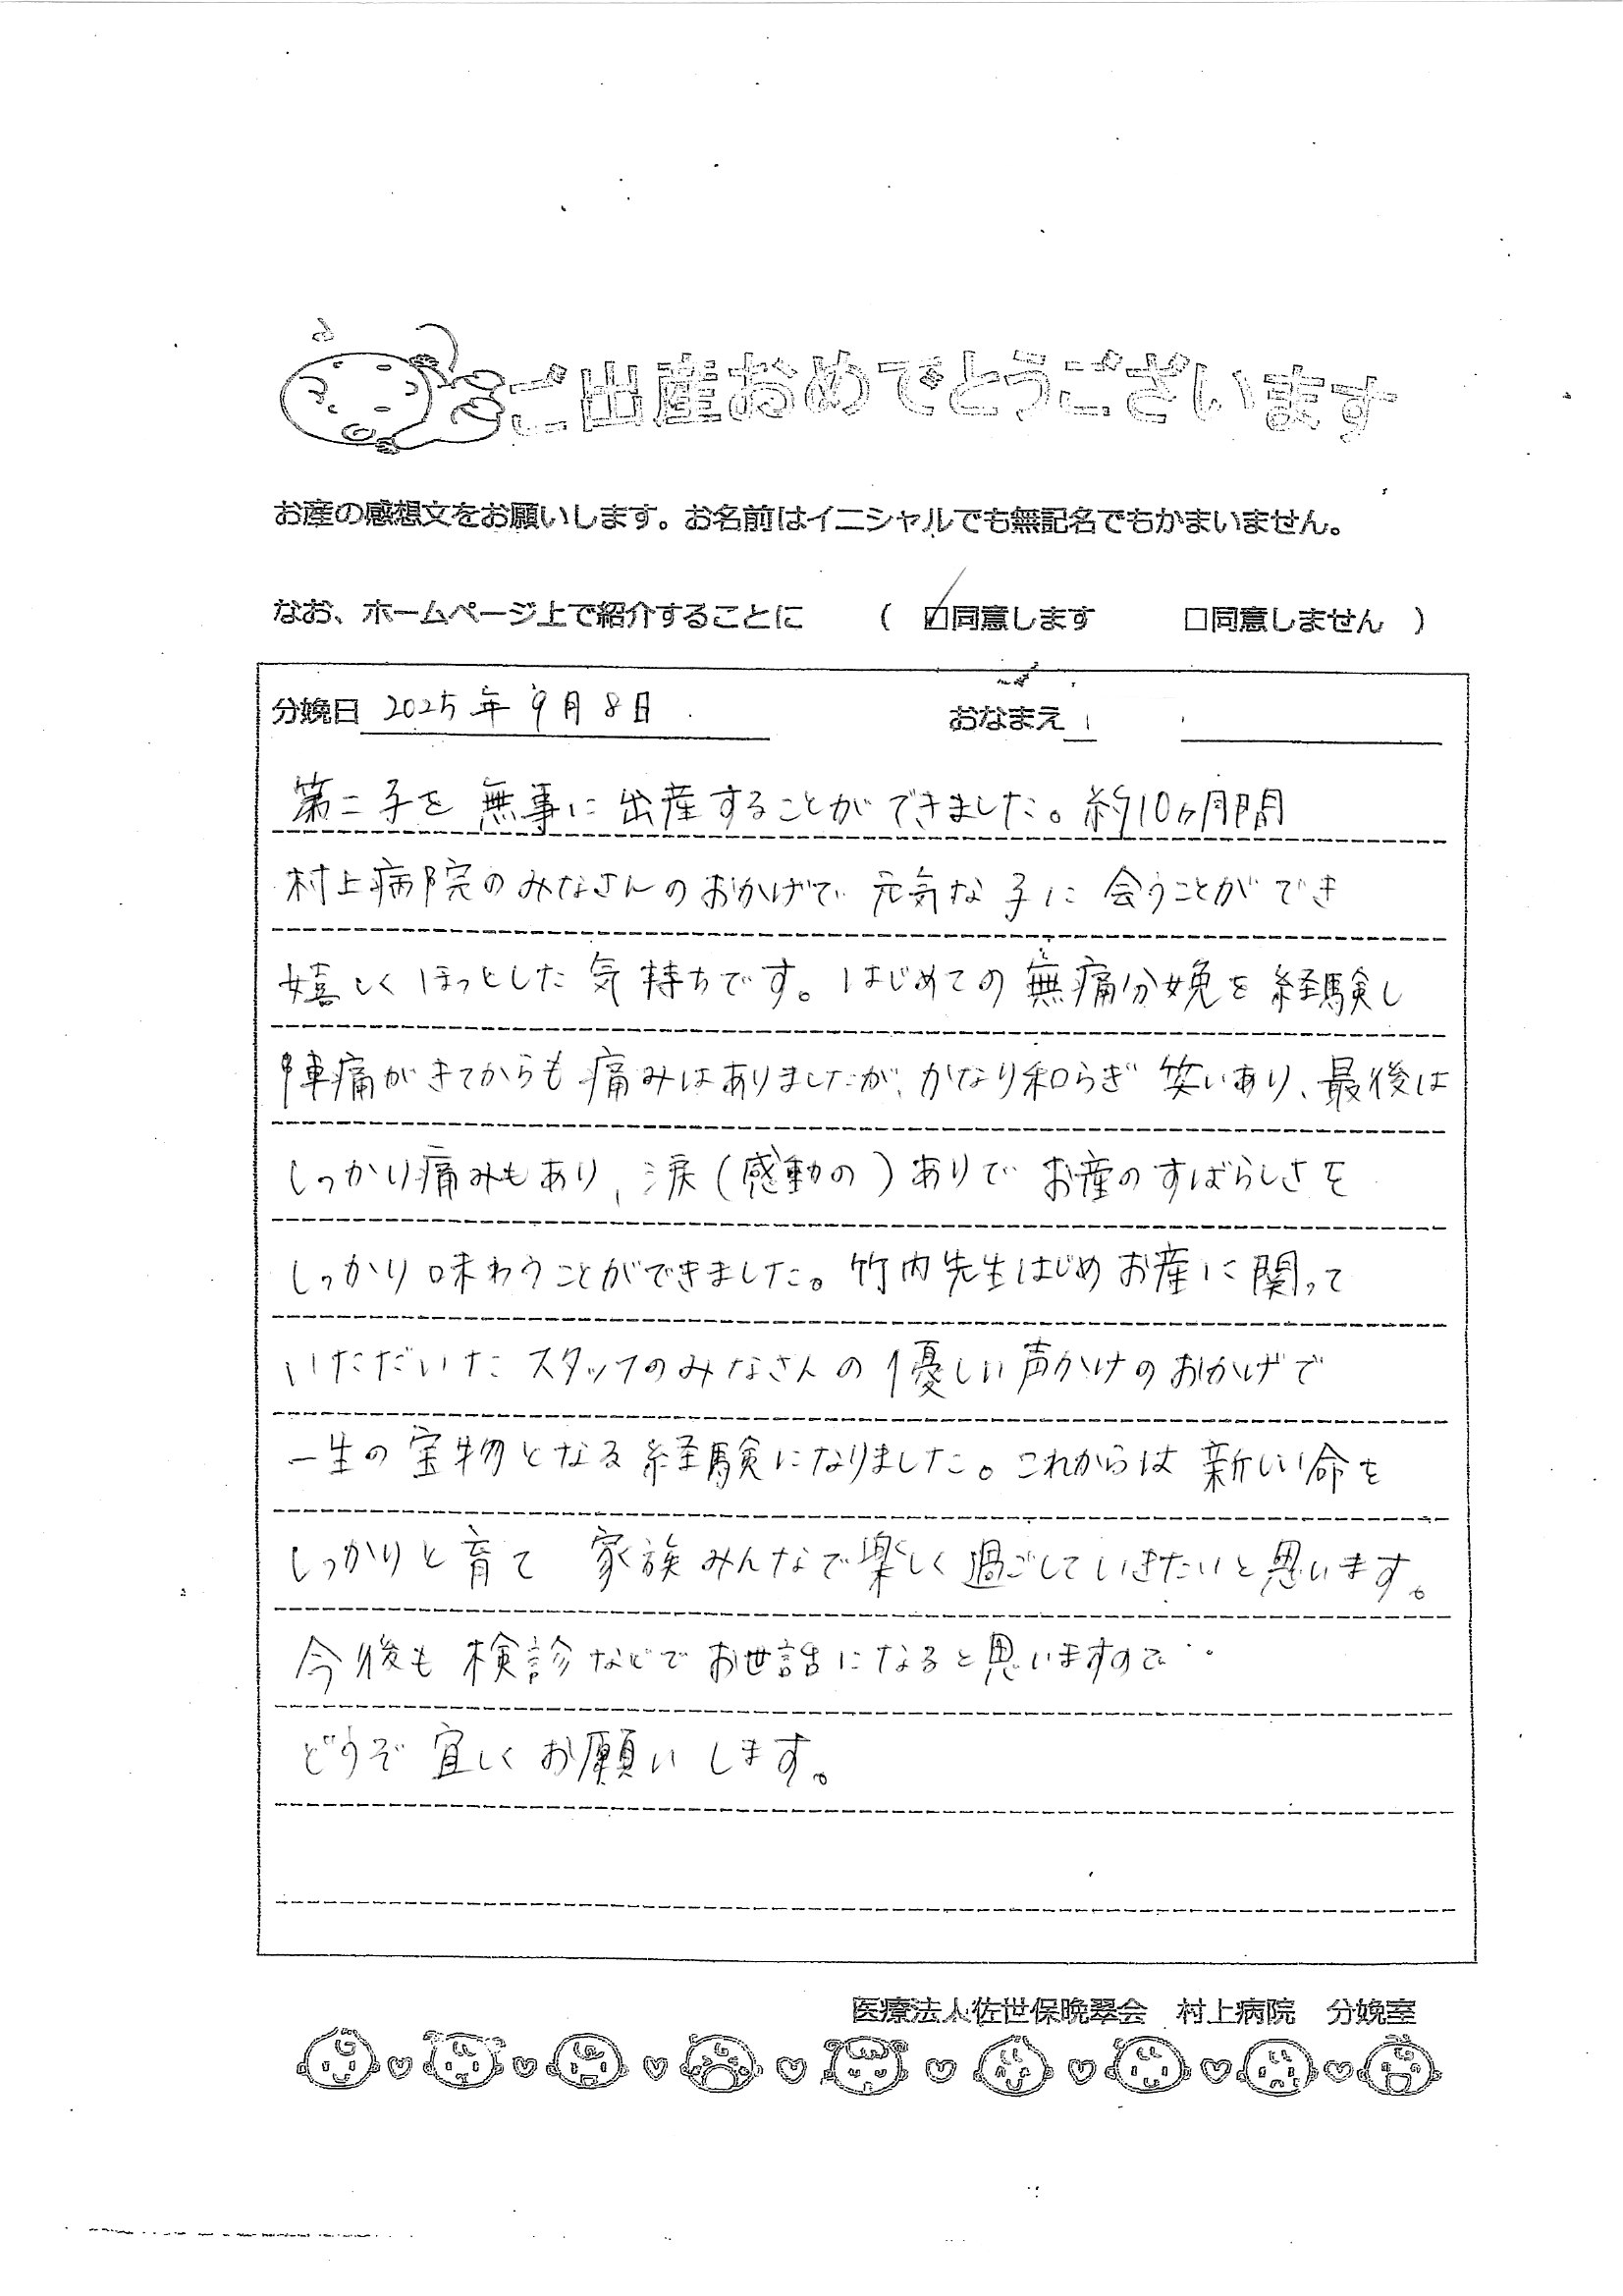 ご出産おめでとうございます
お産の感想文をお願いします。お名前はイニシャルでも無記名でもかまいません。
なお、ホームページ上で紹介することに （ ☑同意します □同意しません ）
分娩日 2025年9月8日 おなまえ
第二子を無事に出産することができました。約10ヶ月間
村上病院のみなさんのおかげで元気な子に会うことができ
嬉しくほっとした気持ちです。はじめての無痛分娩を経験し
陣痛がきてからも痛みはありましたが、かなり和らぎ笑いあり、最後は
しっかり痛みもあり、涙(感動の)ありでお産のすばらしさを
しっかり味わうことができました。竹内先生はじめお産に関って
いただいたスタッフのみなさんの優しい声かけのおかげで
一生の宝物となる経験になりました。これからは新しい命を
しっかりと育て 家族みんなで楽しく過ごしていきたいと思います。
今後も検診などでお世話になると思いますので‥
どうぞ宜しくお願いします。
医療法人佐世保晩翠会 村上病院 分娩室